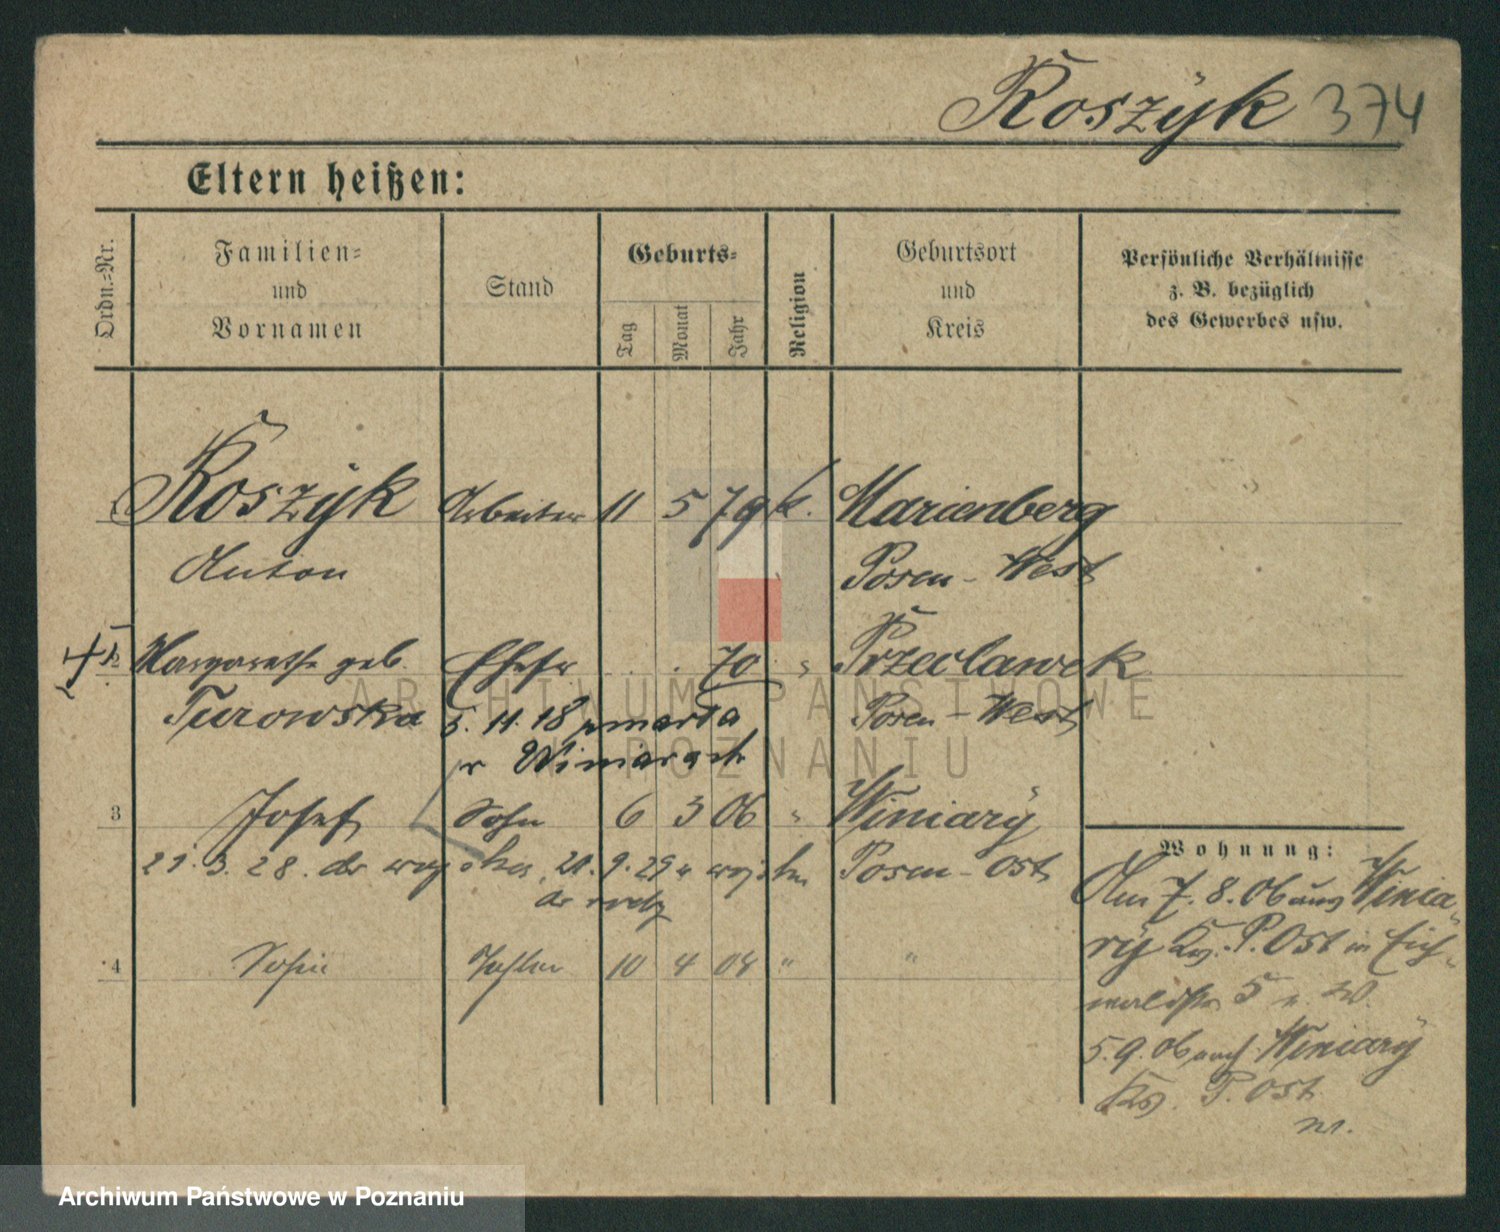 Koszÿk 374
Eltern heißen:
Ordn.-Nr.
Familien-
und
Vornamen
Stand
Geburts-
Tag
Monat
Jahr
Religion
Geburtsort
und
Kreis
Persönliche Verhältnisse
z. B. bezüglich
des Gewerbes usw.
Koszÿk Arbeiter 11 5 79 k. Marienberg
Anton Posen-West
Margarethe geb. Ehefr . . 70 " Przeclawek
Turowska 5. 11. 18 zmarła Posen-West
w Winiarach
3 Josef Sohn 6 3 06 " Winiarÿ
21. 3. 28. do wojska, 20. 9. 29 z wojska Posen-Ost
4 Sofie Tochter 10 4 08 " "
Wohnung:
Am 7. 8. 06 aus Winia-
rÿ Kr. P. Ost in Eich-
waldstr 5 z. W.
5. 9. 06 nach Winiarÿ
Kr. P. Ost
ARCHIWUM PAŃSTWOWE
W POZNANIU
Archiwum Państwowe w Poznaniu